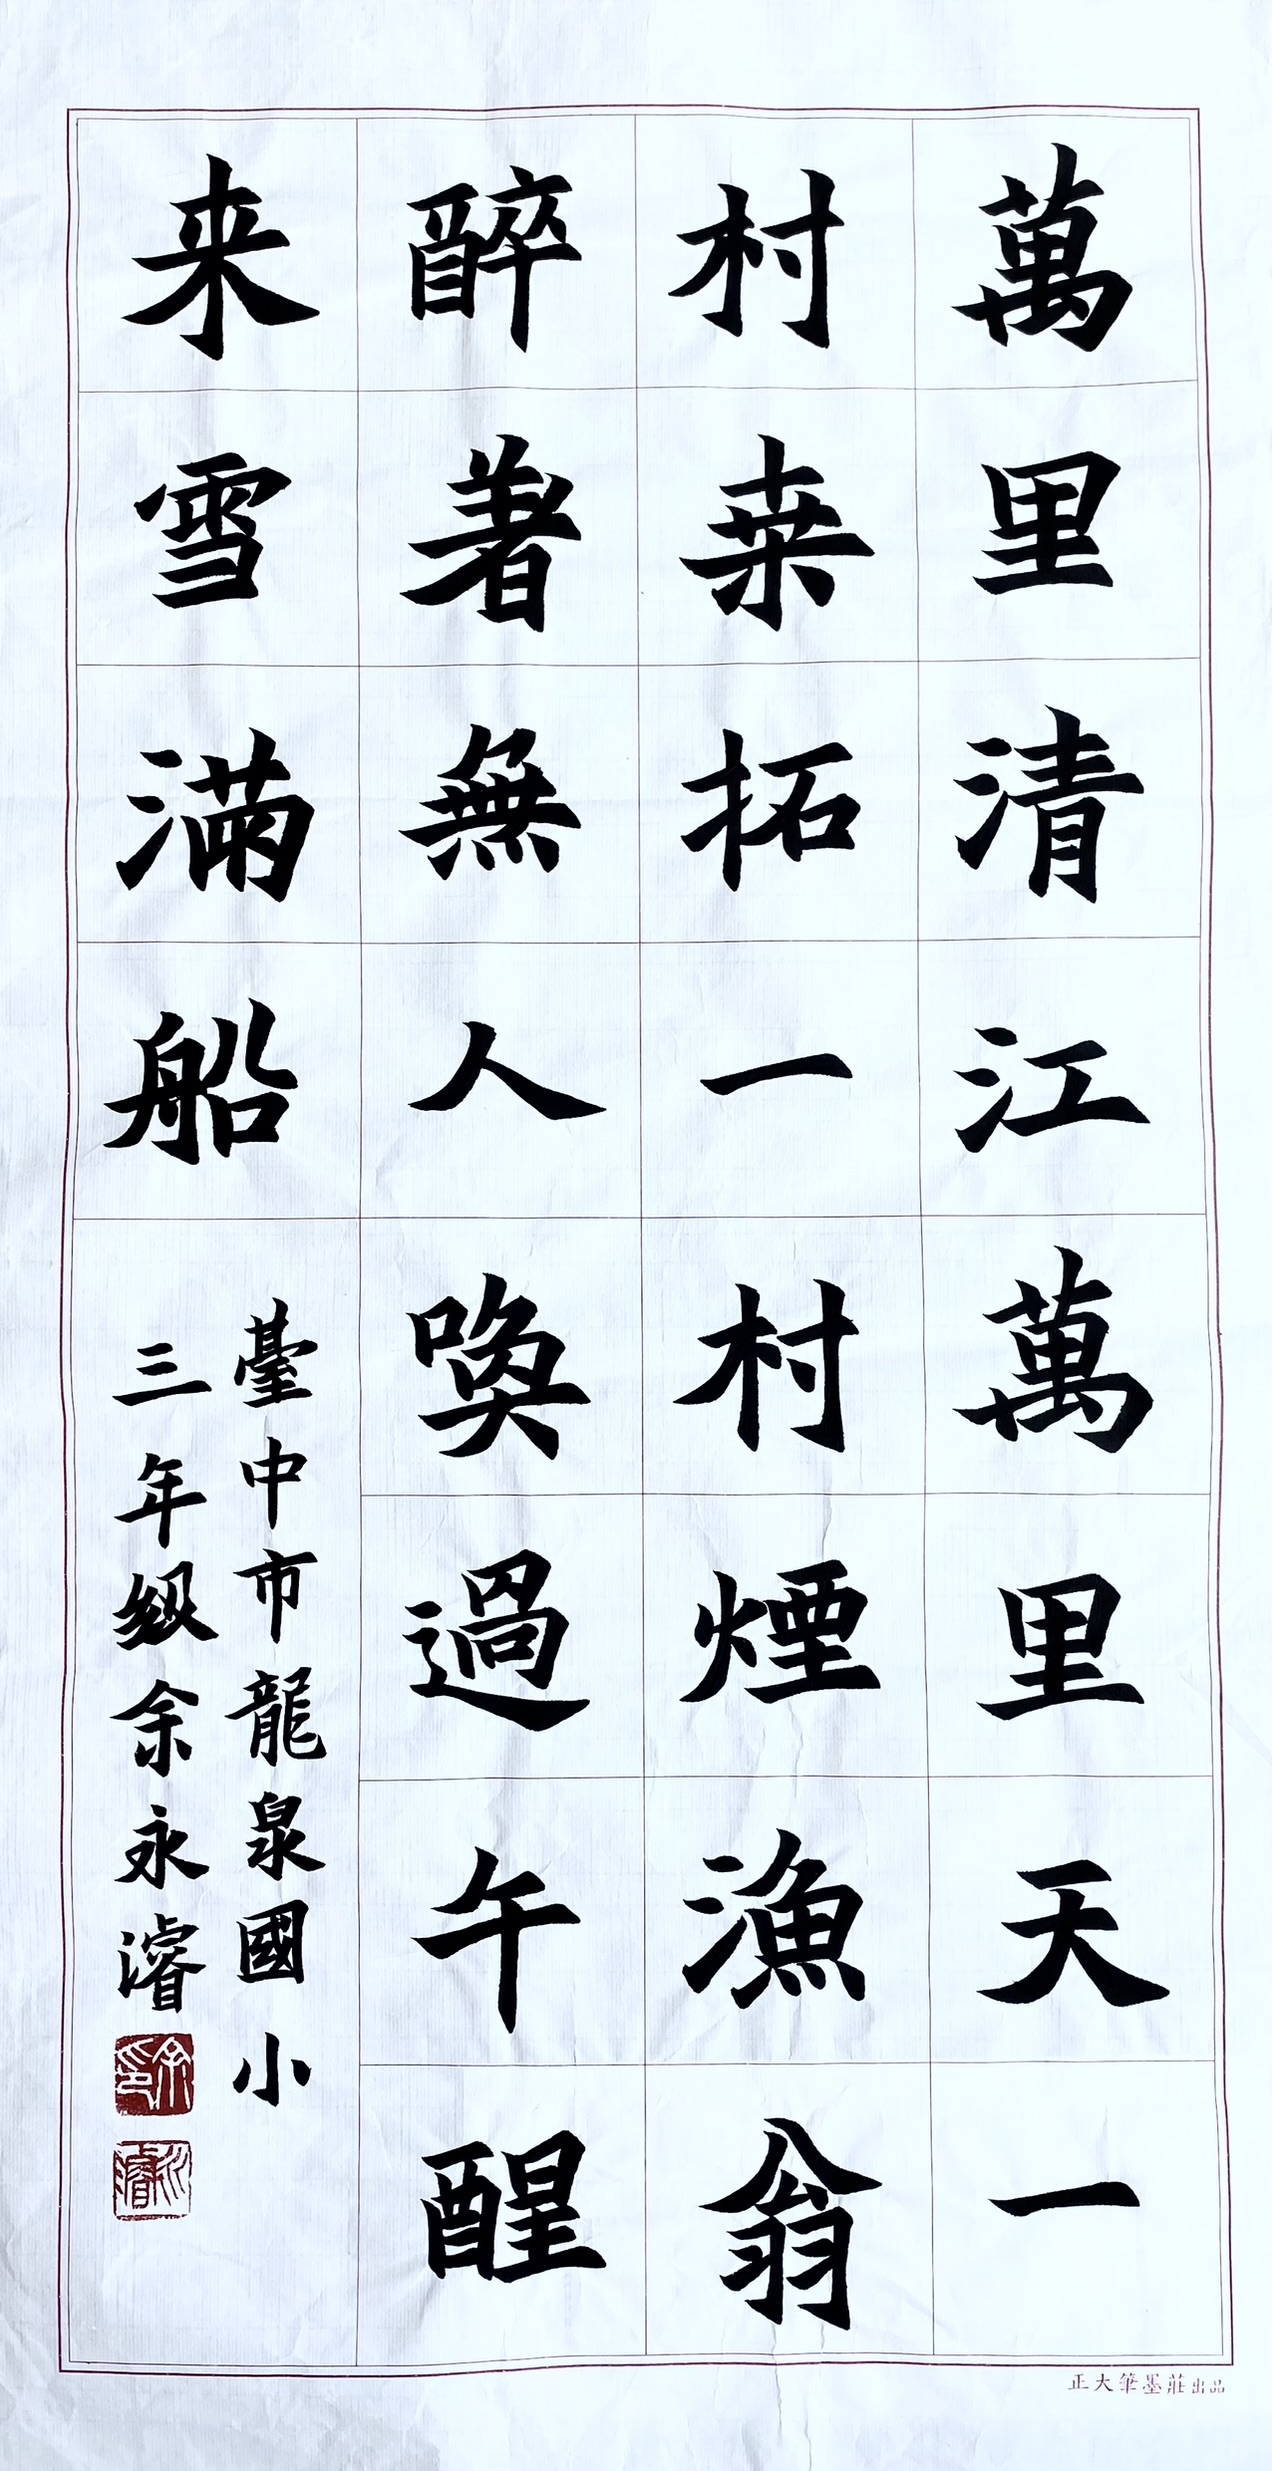 萬里清江萬里天一
村桒拓一村煙漁翁
醉著無人喚過午醒
来雪滿船
臺中市龍泉國小
三年級余永濬
余印
永濬
正大筆墨莊出品